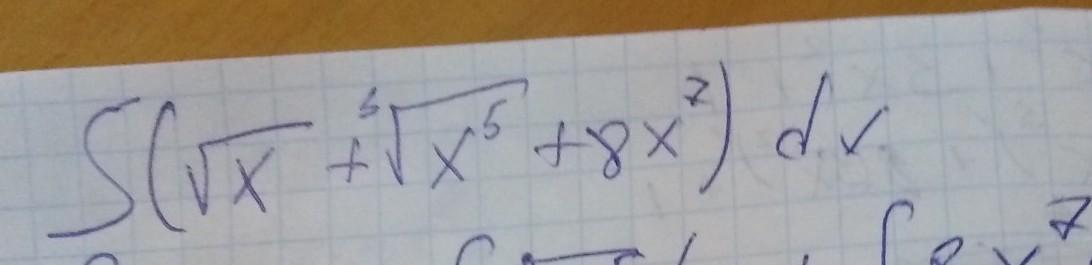 ∫(√x + ³√x⁵ + 8x⁷) dx
∫ 8x⁷